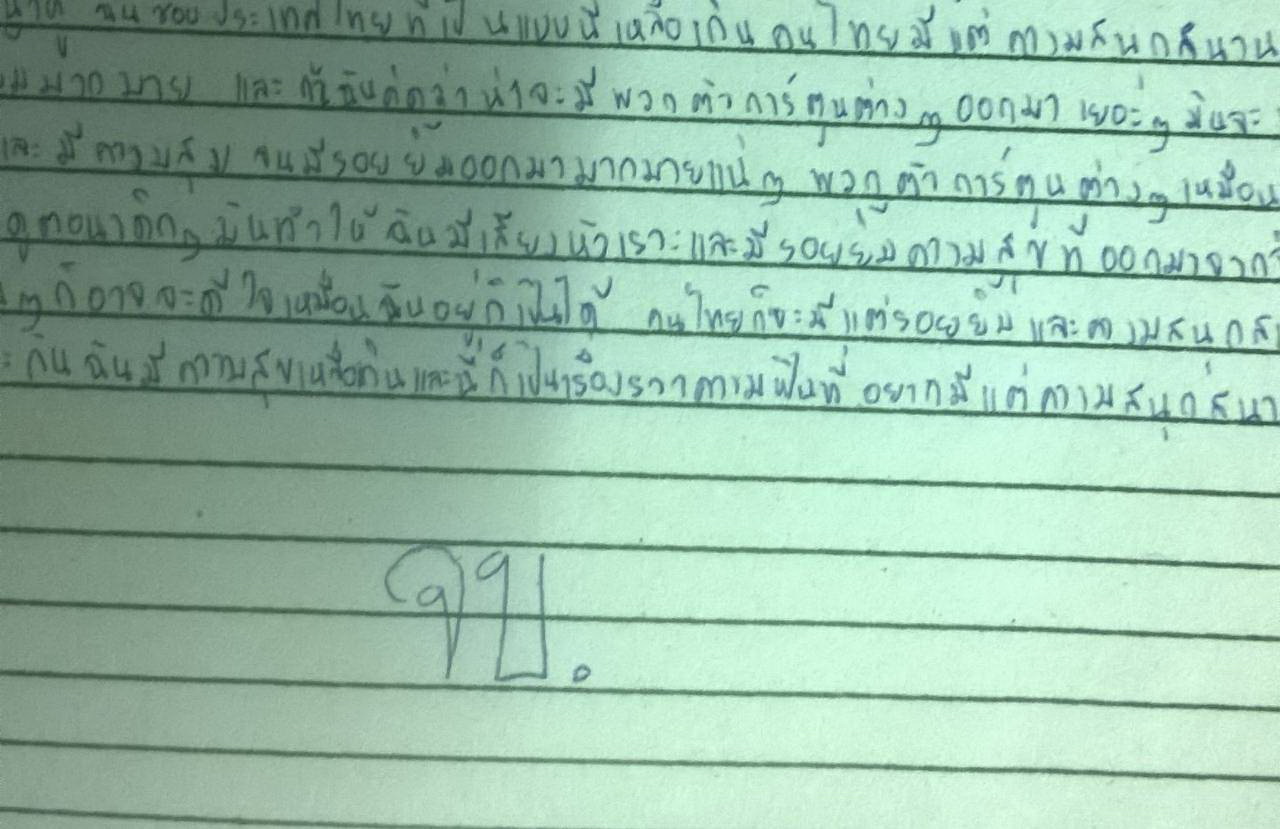 ของประเทศไทยที่เป็นแบบนี้เหลือเกินคนไทยมีแต่ความสนุกสนาน
มากมาย และก็ฉันคิดว่าน่าจะมีพวกตัวการ์ตูนต่างๆออกมาเยอะๆมันจะ
และมีความสุข จนมีรอยยิ้มออกมามากมายแน่ๆ พวกตัวการ์ตูนต่างๆเหมือน
ดูตอนเด็กๆมันทำให้ฉันมีเสียงหัวเราะและมีรอยยิ้มความสุขที่ออกมาจาก
ๆก็อาจจะดีใจเหมือนฉันอยู่ก็เป็นได้ คนไทยก็จะมีแต่รอยยิ้มและความสนุกส
กัน ฉันมีความสุขเหลือเกินและนี่ก็เป็นเรื่องราวความฝันที่อยากมีแต่ความสนุกสนา